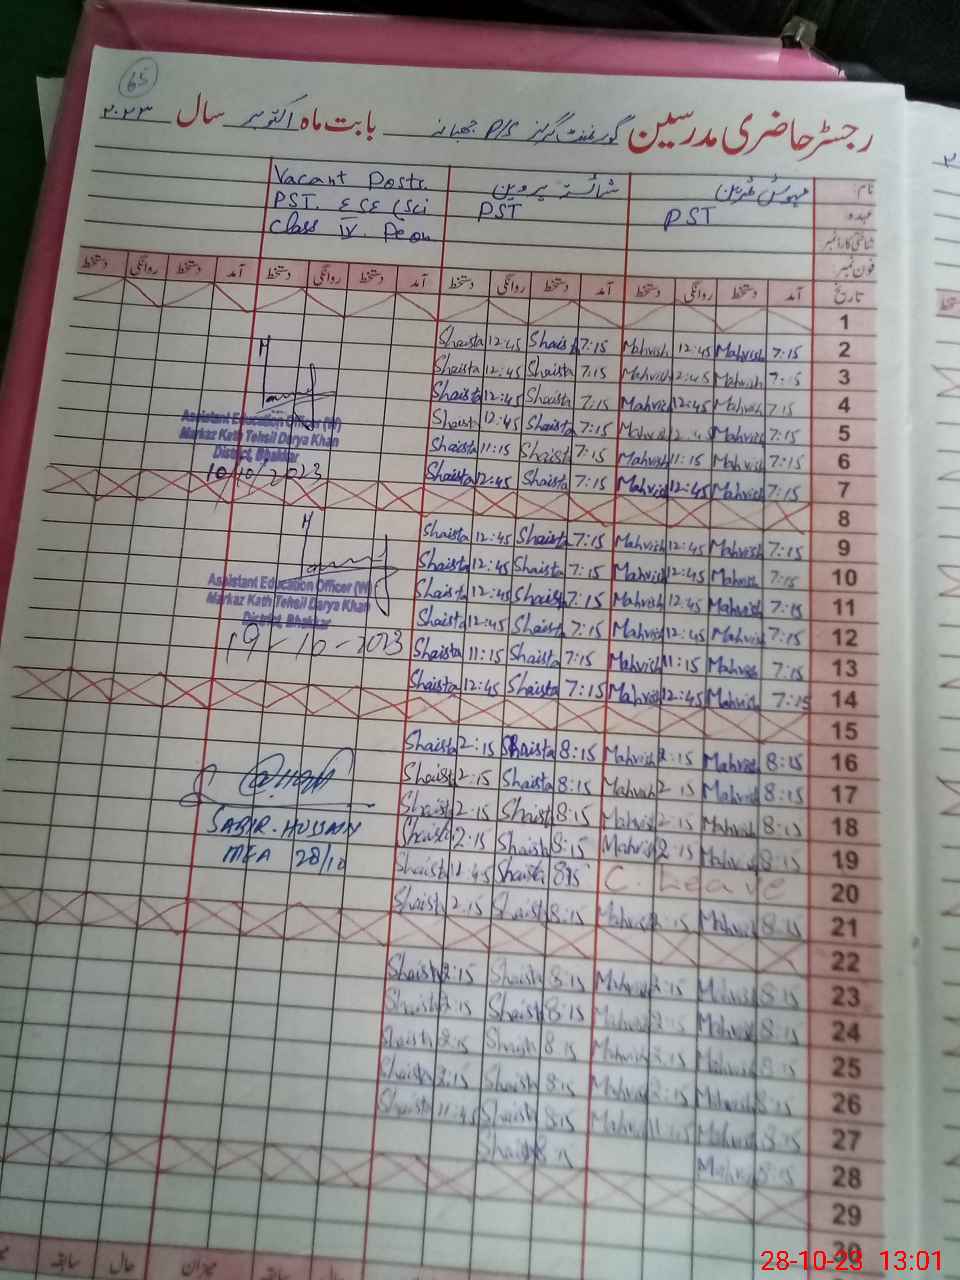 65
رجسٹر حاضری مدرسین گورنمنٹ گرلز P/S بابت ماہ اکتوبر سال ۲۰۲۳
نام: مہوش شاہین شائستہ پروین Vacant Posts.
عہدہ PST PST PST. ESE (Sci
شناختی کارڈ نمبر Class IV. Peon
فون نمبر:
تاریخ آمد دستخط روانگی دستخط آمد دستخط روانگی دستخط آمد دستخط روانگی دستخط آمد دستخط روانگی دستخط
1
Shaista 12:45 Shaista 7:15 Mahvish 12:45 Mahvish 7:15 2
Shaista 12:45 Shaista 7:15 Mahvish 12:45 Mahvish 7:15 3
Shaista 12:45 Shaista 7:15 Mahvish 12:45 Mahvish 7:15 4
Shaista 12:45 Shaista 7:15 Mahvish 12:45 Mahvish 7:15 5
Shaista 11:15 Shaista 7:15 Mahvish 11:15 Mahvish 7:15 6
Shaista 12:45 Shaista 7:15 Mahvish 12:45 Mahvish 7:15 7
Assistant Education Officer (W)
Markaz Kath Tehsil Darya Khan
District, Bhakkar
10/10/2023
8
Shaista 12:45 Shaista 7:15 Mahvish 12:45 Mahvish 7:15 9
Shaista 12:45 Shaista 7:15 Mahvish 12:45 Mahvish 7:15 10
Shaista 12:45 Shaista 7:15 Mahvish 12:45 Mahvish 7:15 11
Shaista 12:45 Shaista 7:15 Mahvish 12:45 Mahvish 7:15 12
Shaista 11:15 Shaista 7:15 Mahvish 11:15 Mahvish 7:15 13
Shaista 12:45 Shaista 7:15 Mahvish 12:45 Mahvish 7:15 14
Assistant Education Officer (W)
Markaz Kath Tehsil Darya Khan
District, Bhakkar
19-10-2023
15
Shaista 2:15 Shaista 8:15 Mahvish 2:15 Mahvish 8:15 16
Shaista 2:15 Shaista 8:15 Mahvish 2:15 Mahvish 8:15 17
Shaista 2:15 Shaista 8:15 Mahvish 2:15 Mahvish 8:15 18
Shaista 2:15 Shaista 8:15 Mahvish 2:15 Mahvish 8:15 19
Shaista 12:45 Shaista 8:15 C. Leave 20
Shaista 2:15 Shaista 8:15 Mahvish 2:15 Mahvish 8:15 21
SABIR. HUSSAIN
MEA 28/10
22
Shaista 2:15 Shaista 8:15 Mahvish 2:15 Mahvish 8:15 23
Shaista 2:15 Shaista 8:15 Mahvish 2:15 Mahvish 8:15 24
Shaista 2:15 Shaista 8:15 Mahvish 2:15 Mahvish 8:15 25
Shaista 2:15 Shaista 8:15 Mahvish 2:15 Mahvish 8:15 26
Shaista 11:45 Shaista 8:15 Mahvish 11:45 Mahvish 8:15 27
Shaista 8:15 Mahvish 8:15 28
29
30
میزان حال سابقہ
28-10-23 13:01